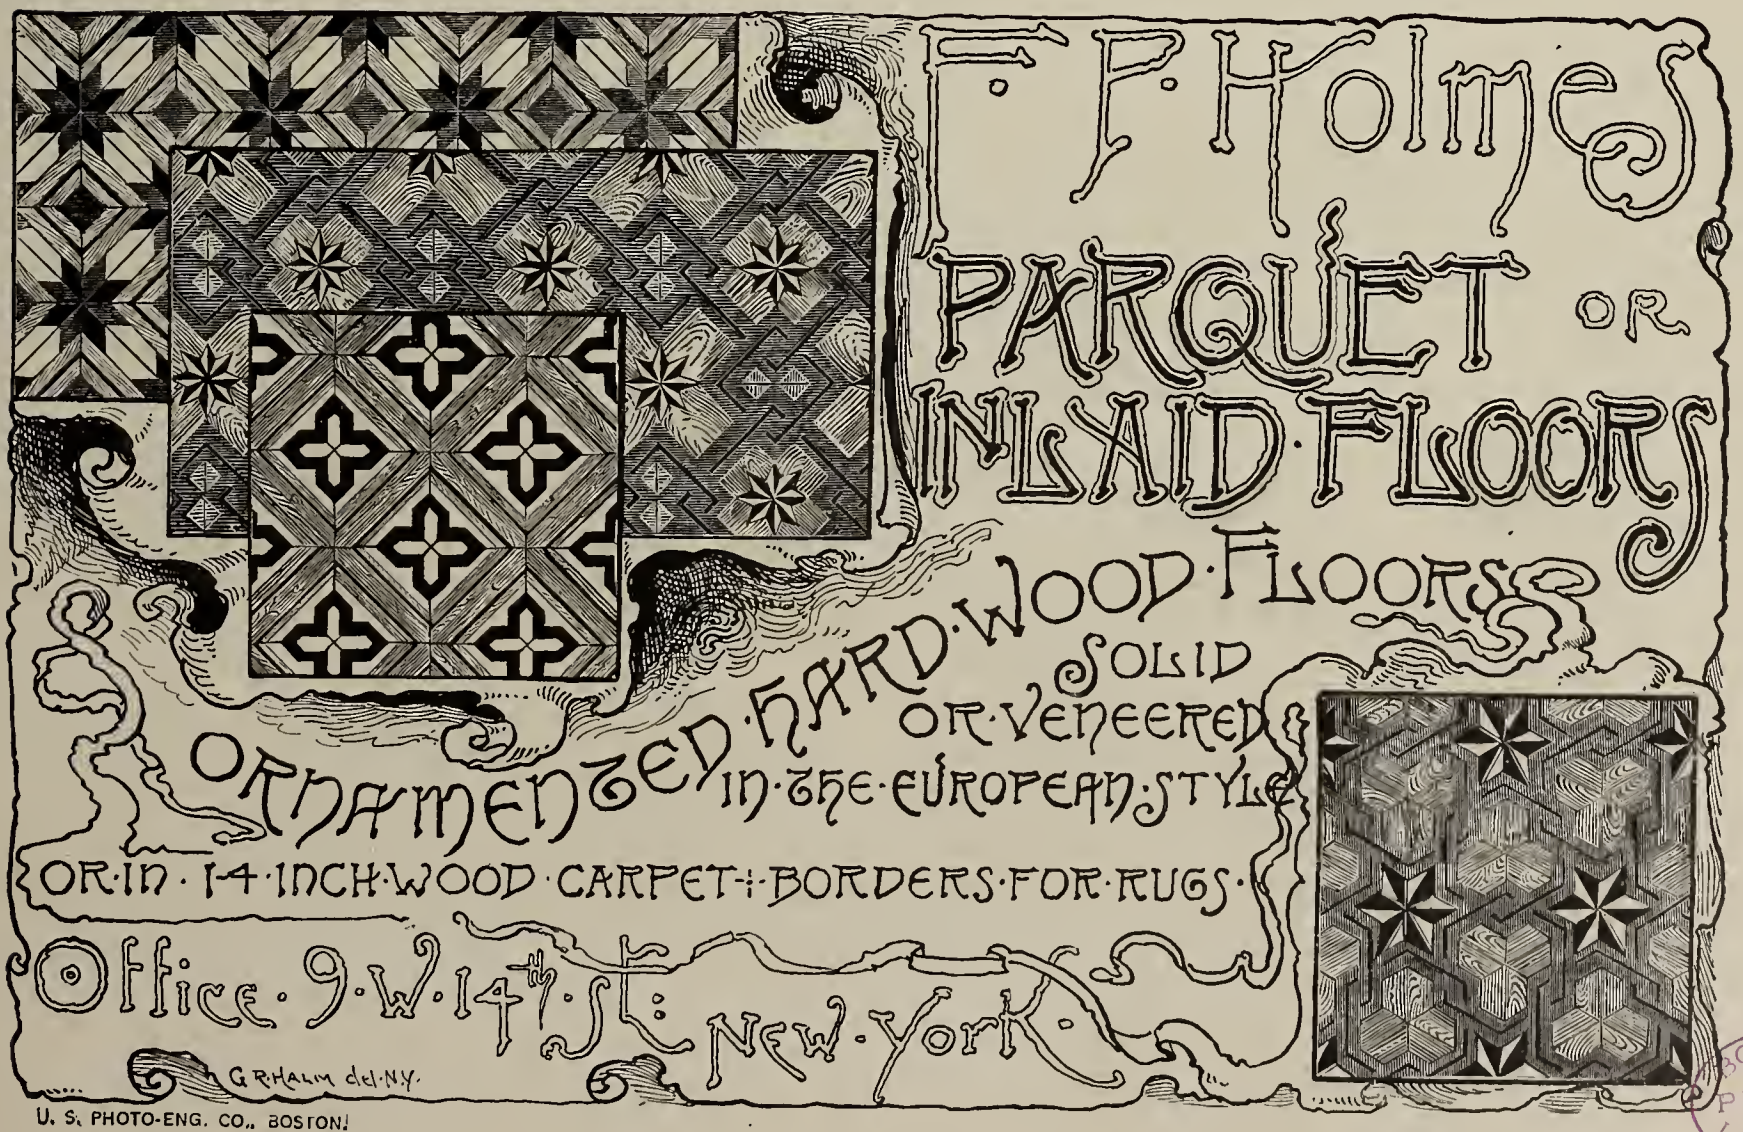 F. P. Holmes
PARQUET OR
INLAID · FLOORS
ORNAMENTED · HARD · WOOD · FLOORS
SOLID
OR · VENEERED
IN · THE · EUROPEAN · STYLE
OR · IN · 1-4 · INCH · WOOD · CARPET · BORDERS · FOR · RUGS ·
Office · 9 · W · 14th · St: New · York ·
G R. HALM del. N.Y.
U. S. PHOTO-ENG. CO., BOSTON.